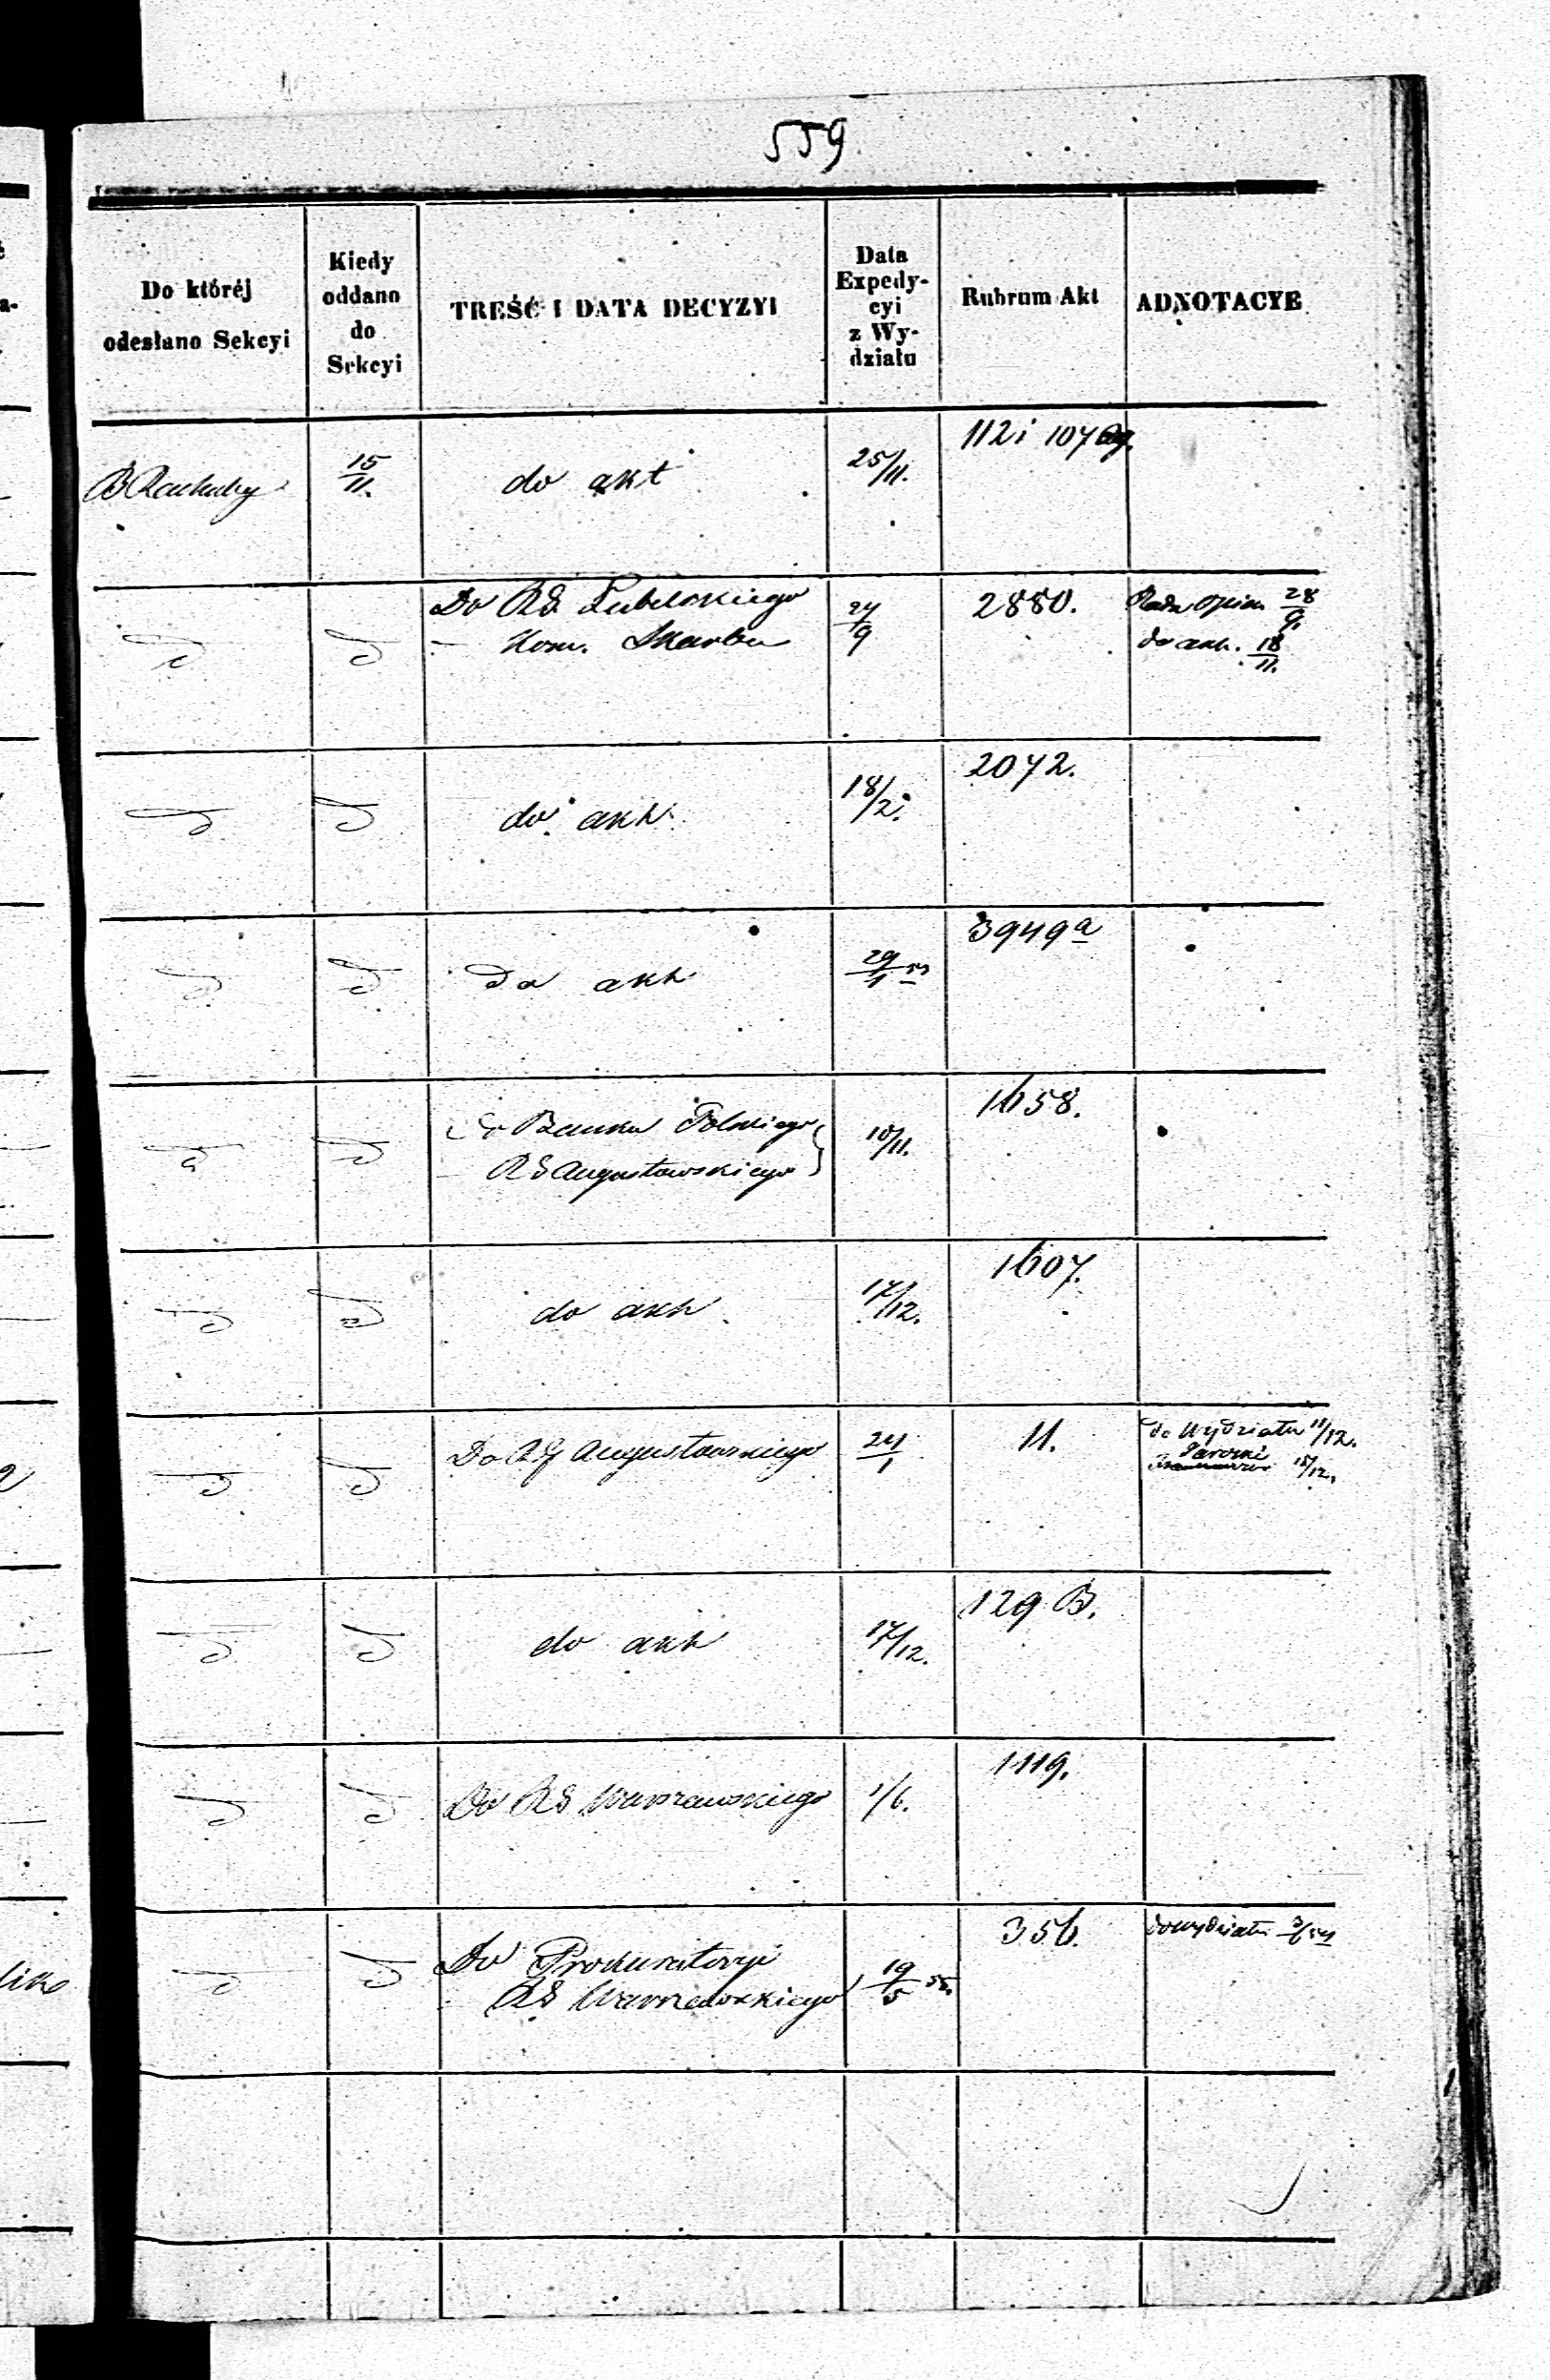 559
Do któréj odesłano Sekcyi
Kiedy oddano do Sekcyi
TREŚĆ I DATA DECYZYI
Data Expedycyi z Wydziału
Rubrum Akt
ADNOTACYE
B Rachuby 15/11. do akt 25/11. 112 i 107
d d Do RG Lubelskiego 24/9 2880. Rada Opiek 28/9.
— Kom. Skarbu do akt. 18/11.
d d do akt 18/2. 2072.
d d Do akt 29/1 3949a
d d Do Banku Polskiego 10/11. 1658.
— RG Augustowskiego
d d do akt 17/12. 1607.
d d Do RG Augustowskiego 24/1 11. do Wydziału 11/12.
15/12.
d d do akt 17/12. 129 B.
d d Do RG Warszawskiego 1/6. 1119.
d d Do Prokuratoryi 19/5 55. 356. do wydziału
RG Warszawskiego